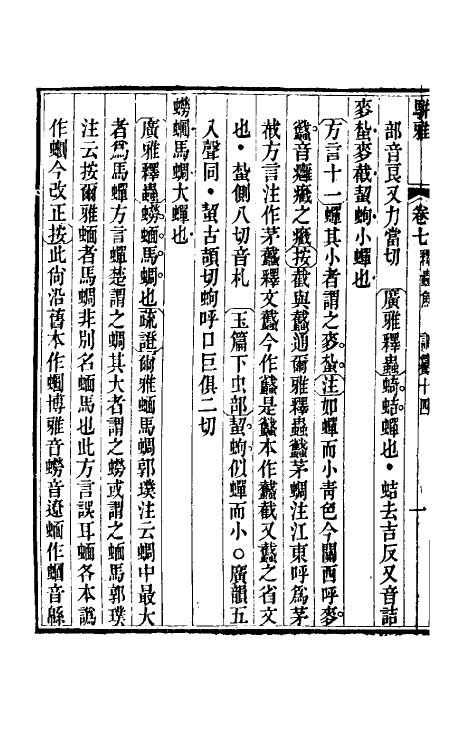 駢雅 卷七 釋蟲魚 訓纂十四 一
部音艮又力當切 廣雅釋蟲蛣蛣蟬也·蛣去吉反又音詰
麥蚻麥截蛪蚼小蟬也
方言十一蟬其小者謂之麥蚻注如蟬而小靑色今關西呼麥
蠽音癰癤之癤按截與蠽通爾雅釋蟲蠽茅蜩注江東呼爲茅
截方言注作茅蠽釋文蠽今作䘁是䘁本作蠽截又蠽之省文
也·蚻側八切音札 玉篇下虫部蛪蚼似蟬而小○廣韻五
入聲同·蛪古頡切蚼呼口巨俱二切
蟧蝒馬蜩大蟬也
廣雅釋蟲蟧蝒馬蜩也疏證爾雅蝒馬蜩郭璞注云蜩中最大
者爲馬蟬方言蟬楚謂之蜩其大者謂之蟧或謂之蝒馬郭璞
注云按爾雅蝒者馬蜩非別名蝒馬也此方言誤耳蝒各本譌
作蝈今改正按此尙沿舊本作蝈博雅音蟧音遼蝒作蝈音緜